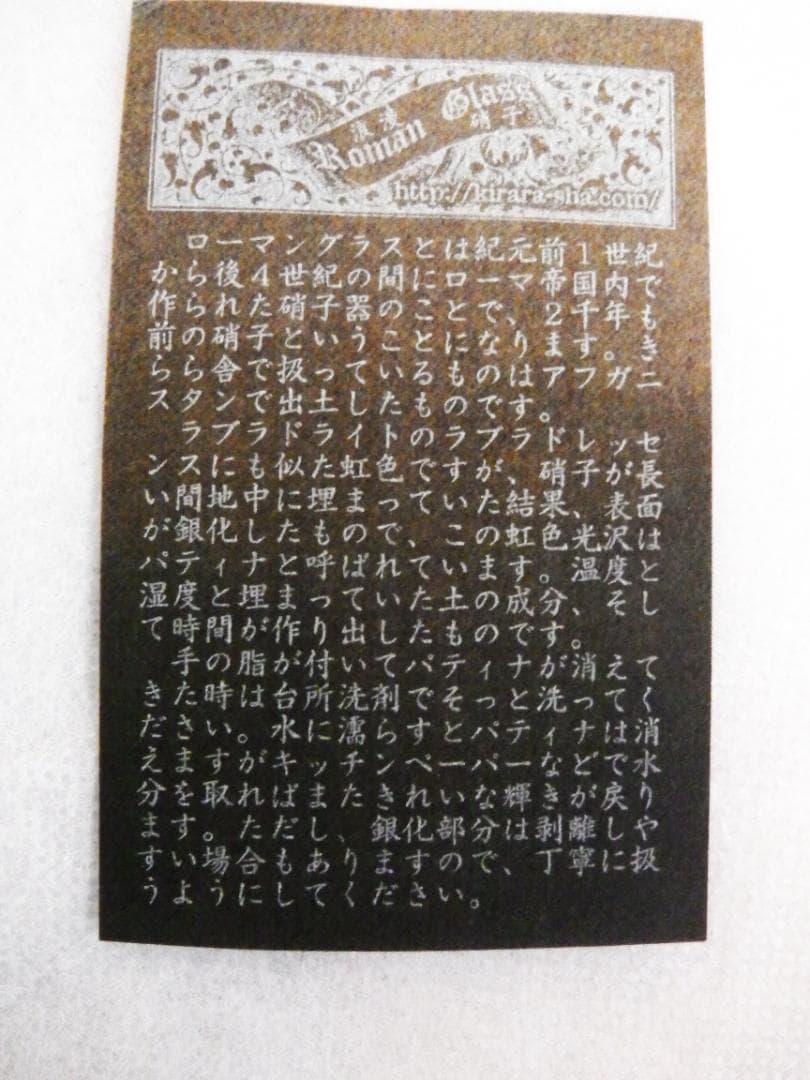 浪漫 硝子
Roman Glass
http://kirara-sha.com/
ローマングラスとは紀元前1世紀
から後4世紀の間にローマ帝国内で
作られた硝子器のことで、2千年も
前の硝子ということになります。き
らら舎で扱っているのはアフガニ
スタンで出土したものです。
ラブラドライトもラブラドレッセ
ンスにも似た虹色ですが、硝子が長
い間地中に埋まっていた結果、表面
が銀化したもので、この虹色光沢は
パティナと呼ばれています。温度と
湿度と埋まっていた土の成分、そし
て時間が作り出したものです。
手の脂が付いてパティナが消えて
きた時は台所洗剤でそっと洗ってく
ださい。水に濡らすとパティナは消
えますがキッチンペーパーなどで水
分を取ればまたきれいな輝きが戻り
ます。ただし、銀化部分は剥離しや
すい場合もありますので、丁寧に扱
うようにしてください。